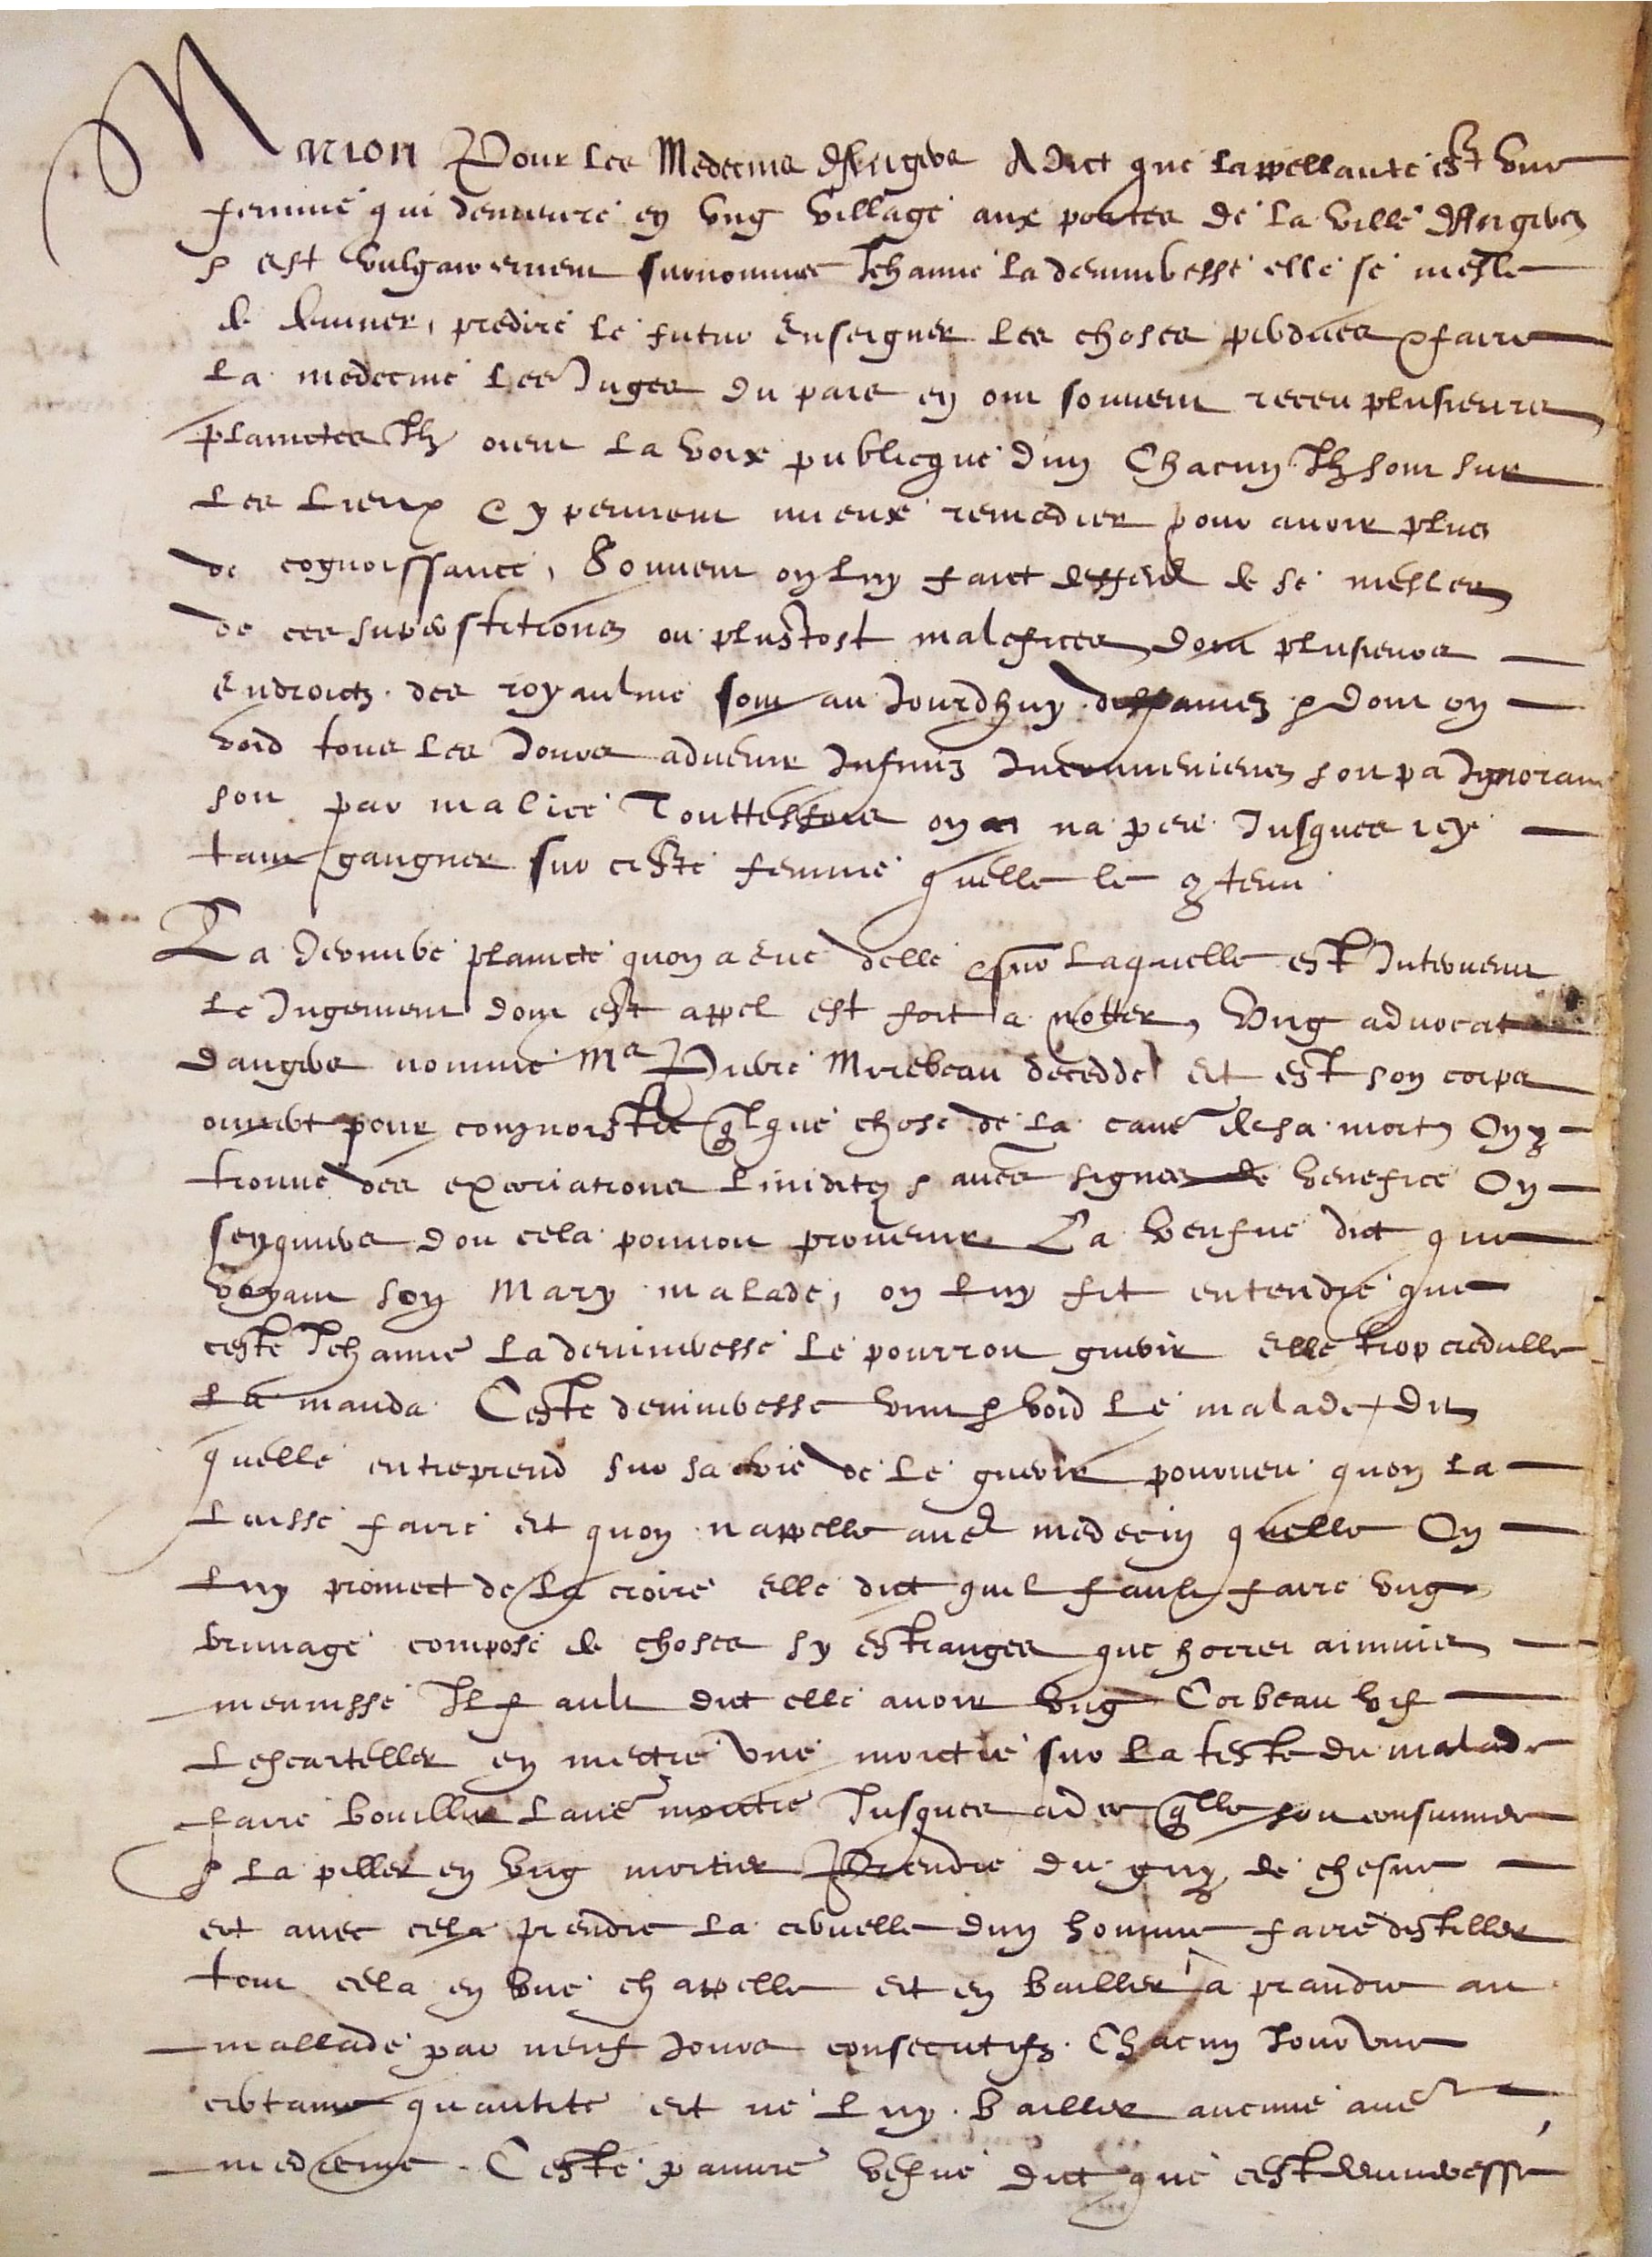 Marion Pour les Medecins d'Angers A dict que lappellante est une
femme qui demeure en ung village aux portes de la ville d'Angers
& est vulgairement surnommee Jehanne la devineresse elle se mesle
de deviner, predire le futur enseigner les choses perdues & faire
la medecine Les Juges du pais en ont souvent receu plusieurs
plainctes Ilz oient la voix publicque d'un Chacun Ilz sont sur
les lieux & y peuvent mieux remedier pour avoir plus
de cognoissance, Souvent on luy faict deffend de se mesler
de ces superstitions ou plustost malefices, dont plusieurs
endroictz des royaulme sont au Jourdhuy & dont on
void tous les Jours advenir Infiniz Inconveniens soit pa Ignoran
soit par malice Touttesfois on na peu Jusques icy
tant gangner sur ceste femme quelle se contenu
La derniere plaincte quon a eue delle & sur laquelle est Intervenu
le Jugement dont est appel est fort a notter, Ung advocat
dangers nomme Me Pierre Mirebeau decedde et est son corps
ouvert pour congnoistre quelque chose de la cause de sa mort, On y
trouve des excoriations lividitez & aues signes de venefice On
senquiert dou cela pouvoit provenir La veufve dict que
voyant son mary malade, on luy fit entendre que
ceste Jehanne la devineresse le pourroit guerir elle trop credulle
la manda Ceste devineresse vint & void le malade, dit
quelle entreprend sur sa vie de le guerir pourveu quon la
laisse faire et quon nappelle autre medecin quelle On
luy promect de la croire elle dict quil fault faire ung
bruvage compose de choses sy estranges que horret animus
meminisse Il fault dict elle avoir ung Corbeau vif
lescarteller en mectre une moictie sur la teste du malade
faire bouillir laue moictie Jusques a ce quelle soit consummee
& la piller en ung mortier prendre du guy de chesne
et avec cela prendre la cervelle dun homme faire distiller
tout cela en une chappelle et en bailler a prandre au
mallade par neuf Jours consecutifz Chacun Jour une
certaine quantite et ne luy bailler aucune aue
medecine. Ceste pauvre vefve dict que ceste devineresse